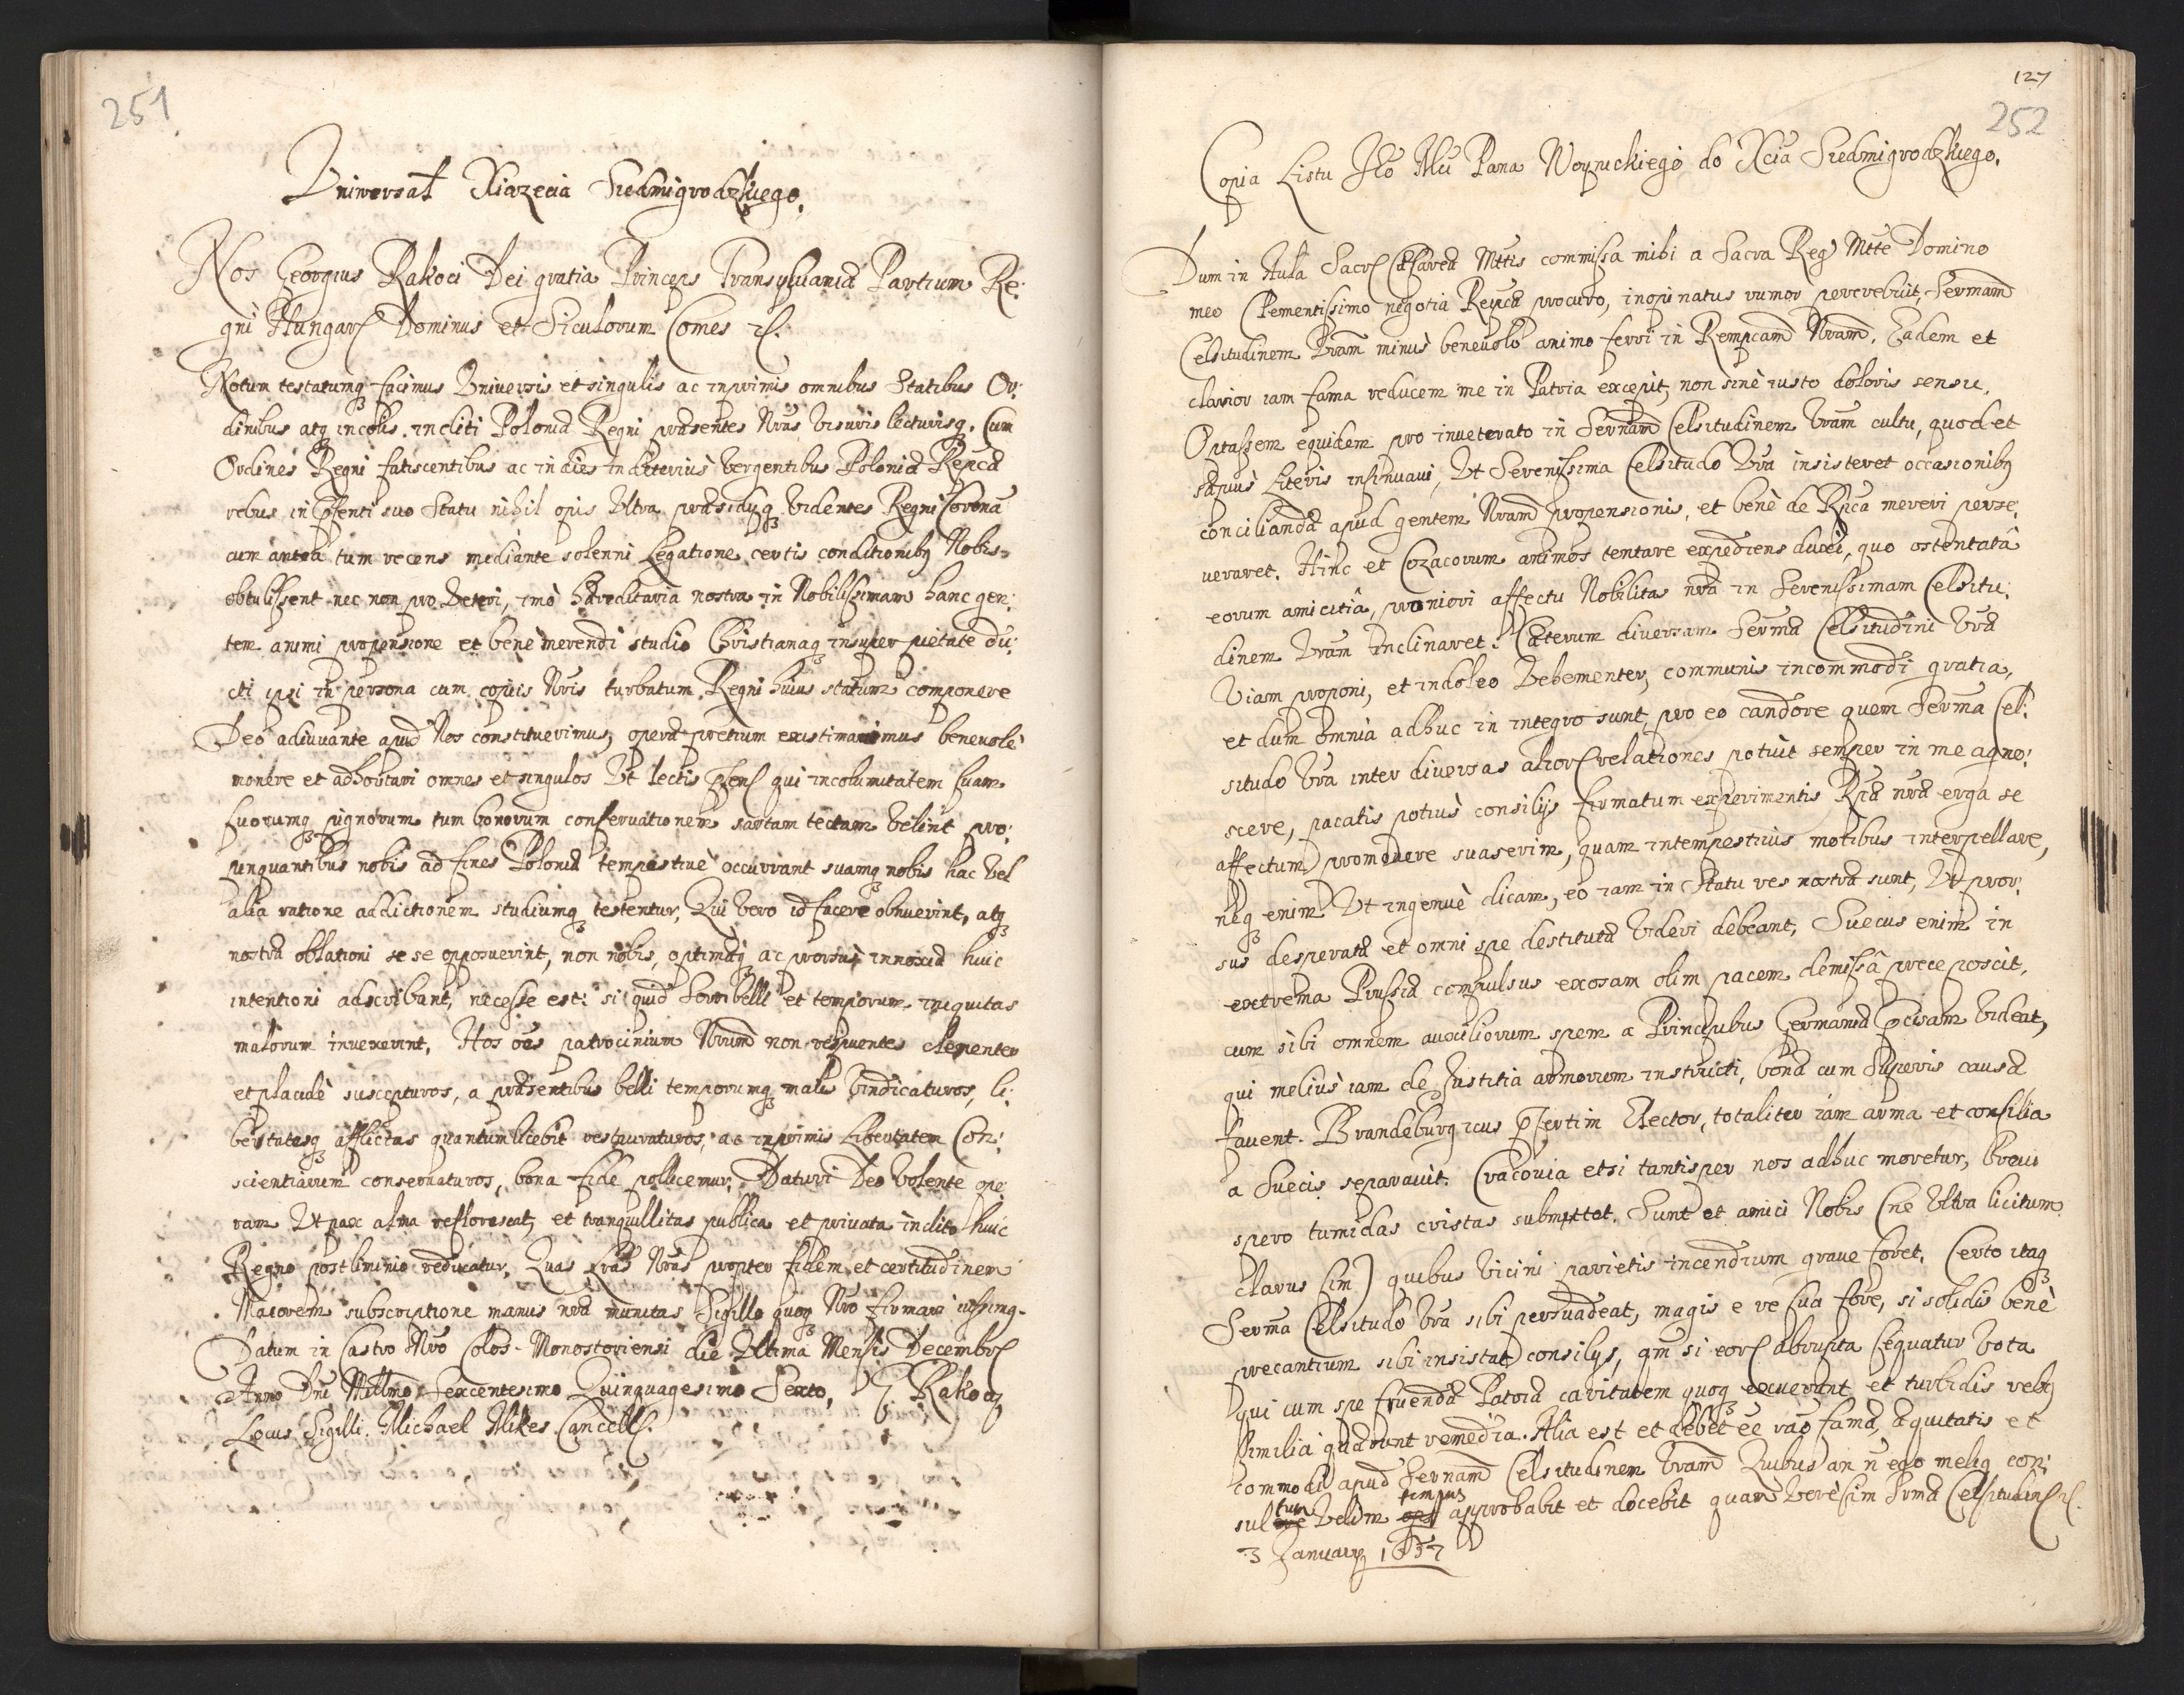 251
Uniwersał Xiązecia Siedmigrodzkiego.
Nos Georgius Rakoci Dei gratia Princeps Transyluaniæ Partium Re:
gni Hungar Dominus et Siculorum Comes
Notum testatumq facimus Vniuersis et singulis ac inprimis omnibus Statibus Or:
dinibus atq incolis incliti Poloniæ Regni præsentes Nras visuris lecturisq. Cum
Ordines Regni fatiscentibus ac in dies in deterius vergentibus Poloniæ Reipcæ
rebus in psenti suo Statu nihil opis Vltra præsidyq videntes Regni Coronã
cum antea tum recens mediante solenni Legatione certis conditioniby Nobis
obtulissent nec non pro veteri, imò hæreditaria nostra in Nobilissimam hanc gen:
tem animi propensione et benè merendi studio Christianaq insuper pietate du:
cti ipsi in persona cum copiis Nris turbatum Regni huius statum componere
Deo adiuuante apud Nos constituerimus, operæ pretium existimauimus beneuolè
monere et adhortari omnes et singulos Vt lectis psen qui incolumitatem suam
suorumq pignorum tum bonorum conseruationem sartam tectam velint pro:
pinquantibus nobis ad fines Poloniæ tempestiuè occurrant suamq nobis hac vel
alia ratione addictionem studiumq testentur, Qui vero id facere obnuerint, atq
nostræ oblationi se se opposuerint, non nobis, optimæq ac prorsus innoxiæ huic
intentioni adscribant, necesse est: si quid Sors belli et temporum iniquitas
malorum inuexerint, Hos oes patrocinium Nrum non respuentes clementer
et placidè suscepturos, a præsentibus belli temporumq malis vindicaturos, li:
bertatesq afflictas quantum licebit restauraturos, ac inprimis Libertatem Con:
scientiarum conseruaturos, bona fide pollicemur, Daturi Deo volente ope
ram Vt pax alma reflorescat, et tranquillitas publica et priuata inclito huic
Regno postliminio reducatur, Quas Lras Nras propter fidem et certitudinem
Maiorem subscriptione manus nræ munitas Sigillo quoq Nro firmari iussimq.
Datum in Castro Nro Colos-Monostoriensi die Vltima Mensis Decembr
Anno Dni Millmo Sexcentesimo Quinquagesimo Sexto, G Rakocy
Locus Sigilli. Michael Mikes Cancell.
127
252
Copia Listu Jeo Mci Pana Woynickiego do Xcia Siedmigrodzkiego.
Dum in Aula Sacr Cæsareæ Mttis commissa mihi a Sacra Reg Mtte Domino
meo Clementissimo negotia Reipcæ procuro, inopinatus rumor percrebuit, Sermam
Celsitudinem Vram minùs beneuolo animo ferri in Rempcam Nram. Eadem et
clarior iam fama reducem me in Patria excepit, non sinè iusto doloris sensu.
Optassem equidem pro inueterato in Sernam Celsitudinem Vram cultu, quod et
sæpius Literis insinuaui, Vt Serenissima Celsitudo Vra insisteret occasioniby
conciliandæ apud gentem Nram propensionis, et benè de Rpca mereri perse:
ueraret. Hinc et Cozacorum animos tentare expediens duxi, quo ostentatâ
eorum amicitiâ, proniori affectu Nobilitas nra in Serenissimam Celsitu:
dinem Vram inclinaret. Cæterum diuersam Sermæ Celsitudini Vræ
Viam proponi, et indoleo Vehementer, communis incommodi gratia,
et dum omnia adhuc in integro sunt, pro eo candore quem Serma Cel:
situdo Vra inter diuersas alior relationes potuit semper in me agno:
scere, pacatis potiùs consilijs firmatum experimentis Rpcæ nræ erga se
affectum promouere suaserim, quam intempestiuis motibus interpellare,
neq enim Vt ingenuè dicam, eò iam in Statu res nostræ sunt, Vt pror:
sus desperatæ et omni spe destitutæ videri debeant, Suecus enim in
extrema Prussiæ compulsus exosam olim pacem demissâ prece poscit,
cum sibi omnem auxiliorum spem a Principibus Germaniæ pcisam videat,
qui meliùs iam de Iustitia armorum instructi, bonæ cum Superis causæ
fauent. Brandeburgicus psertim Elector, totaliter iam arma et consilia
a Suecis separauit. Cracouia etsi tantisper nos adhuc moretur, breui
spero tumidas cristas submittet. Sunt et amici Nobis (ne Vltra licitum
clarus sim) quibus vicini parietis incendium graue foret. Certo itaq
Serma Celsitudo Vra sibi persuadeat, magis e re sua fore, si solidis benè
precantium sibi insistat consilijs, qm si eor abrupta sequatur vota
qui cum spe fruendæ Patriæ caritatem quoq exuerunt et turbidis reby
similia quærunt remedia. Alia est et debet ee rao famæ, æquitatis et
commodi apud Sernam Celsitudinem Vram Quibus an n ego meliq con:
sultum velim tempus approbabit et docebit quam verè sim Srmæ Celsitudin
3 January 1657